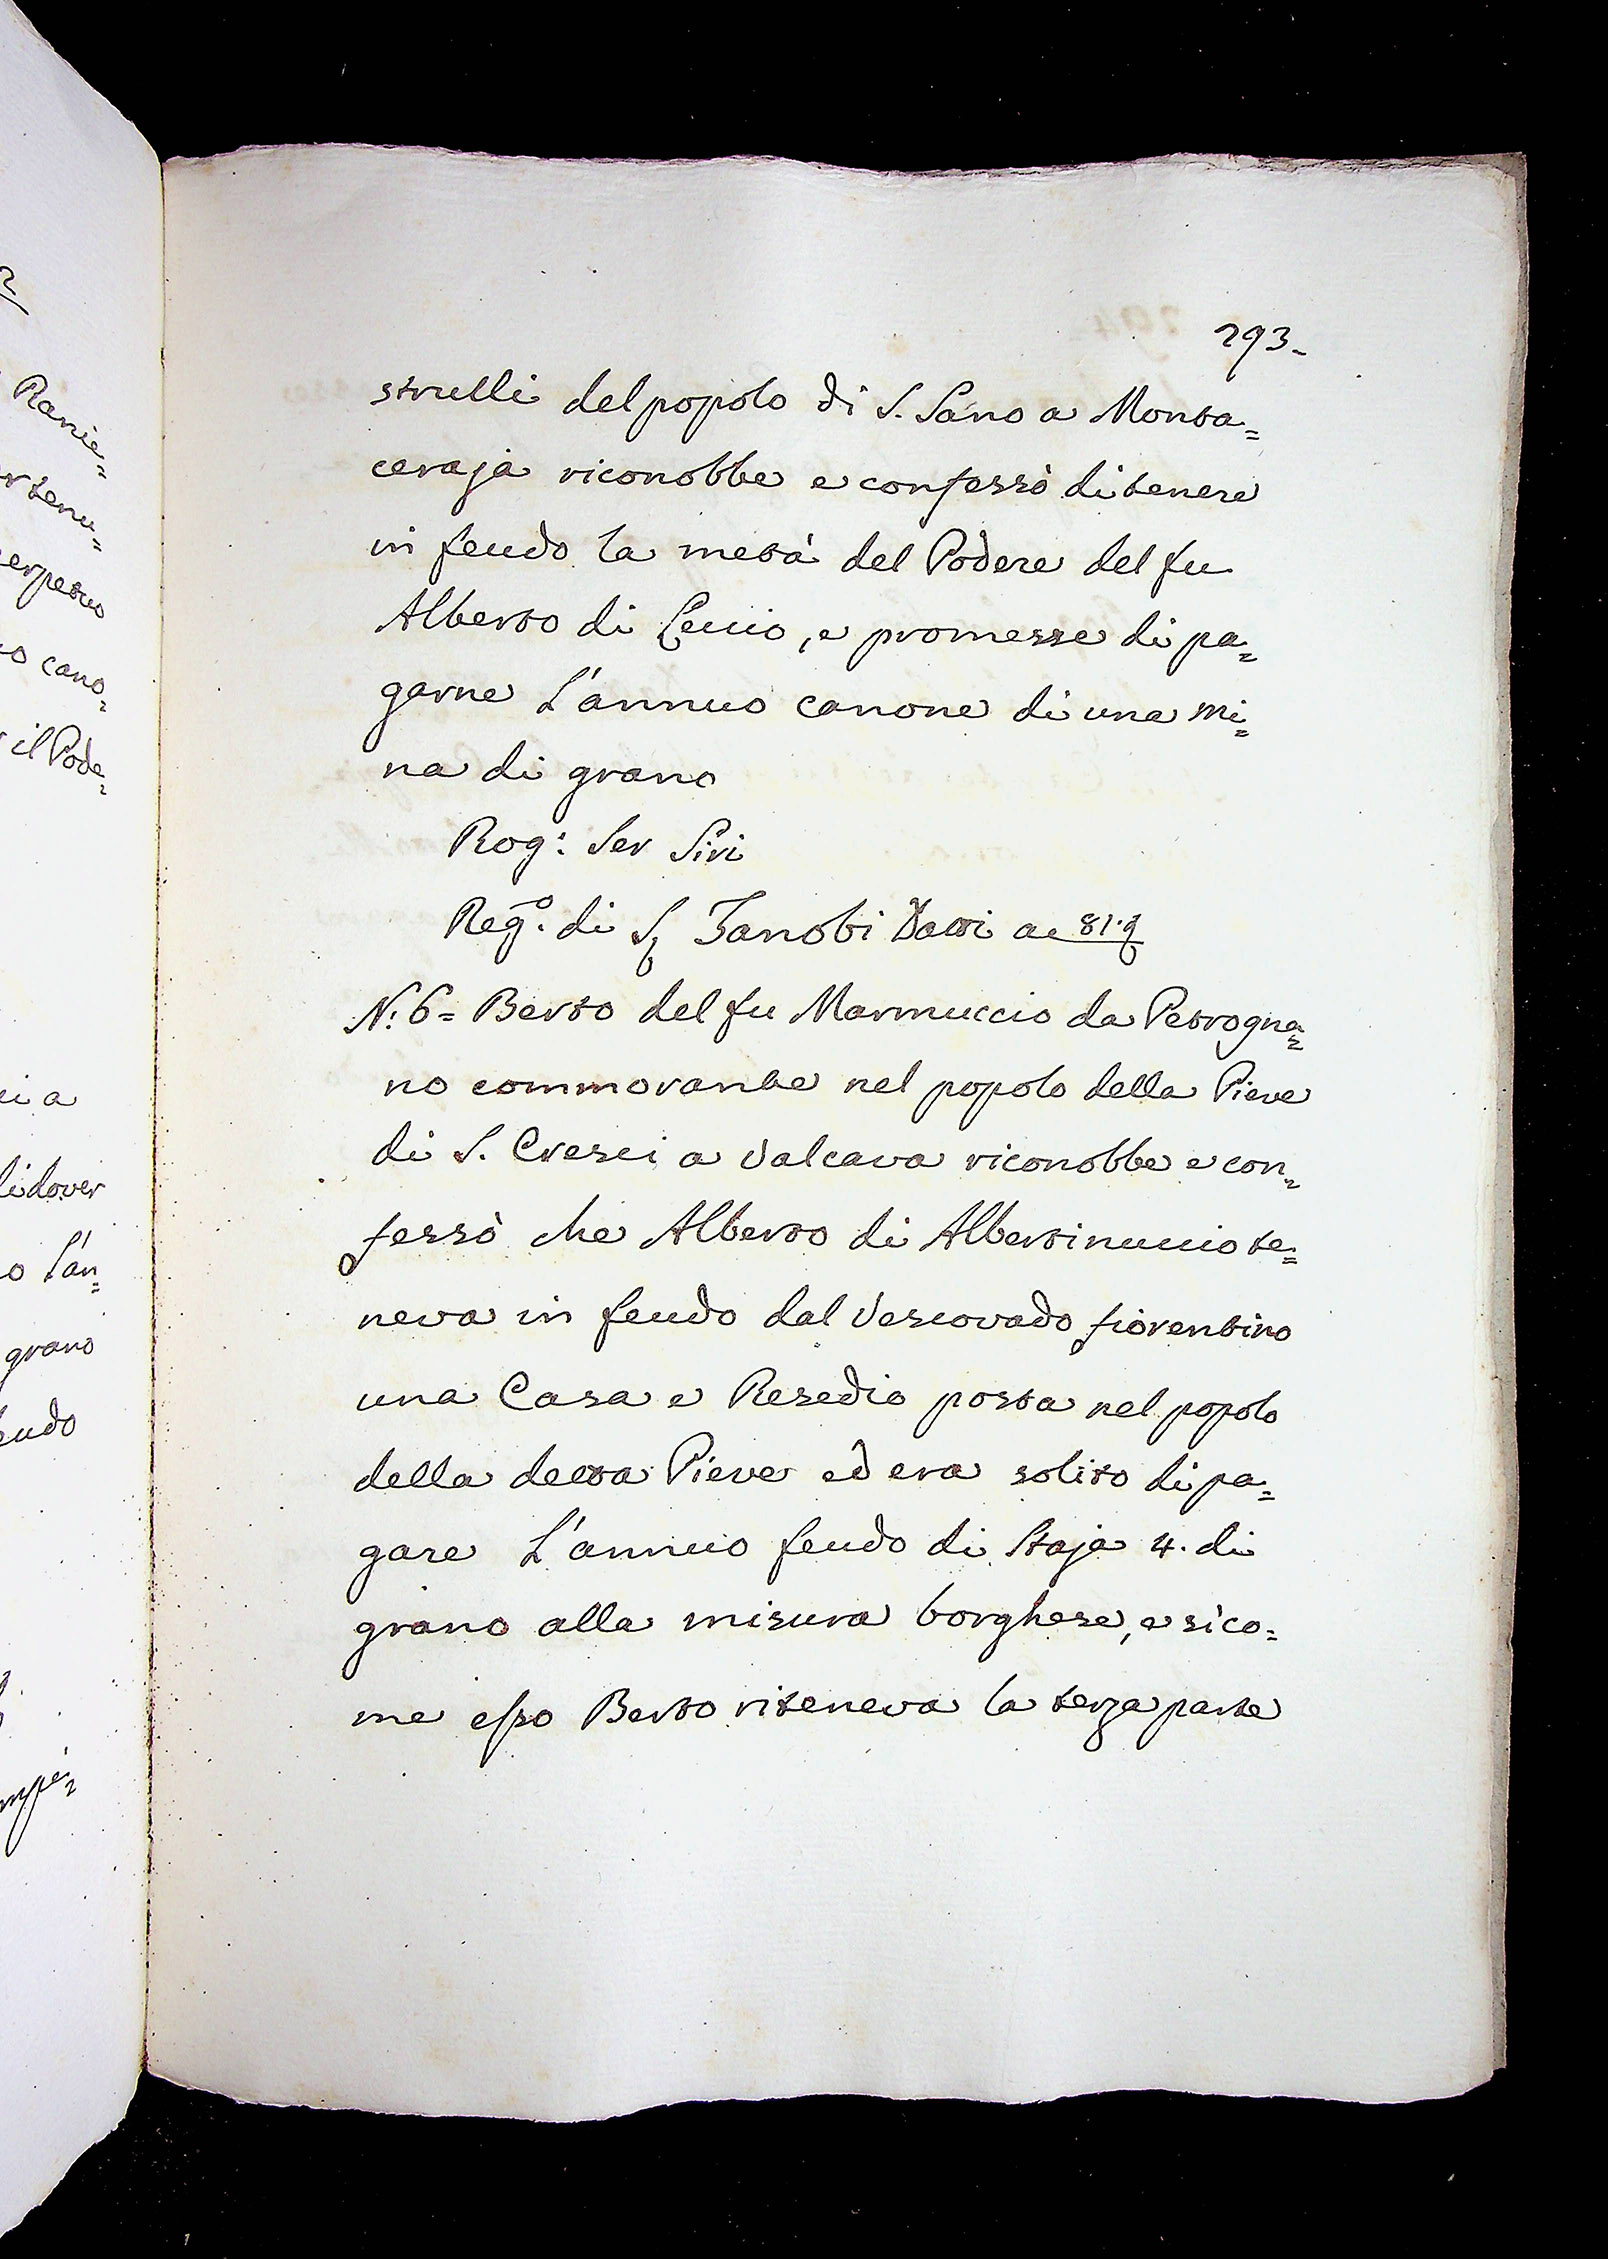 293.
strulli del popolo di S. Sano a Monta=
ceraja riconobbe e confessò di tenere
in feudo la metà del Podere del fu
Alberto di Cecio, e promesse di pa=
garne L'annuo canone di una mi=
na di grano
Rog: Ser Siri
Reg.o di S. Zanobi Dati a 81.
N: 6= Berto del fu Marmuccio da Petrogna=
no commorante nel popolo della Pieve
di S. Cresci a Valcava riconobbe e con=
fessò che Alberto di Albertinuccio te=
neva in feudo dal Vescovado fiorentino
una Casa e Resedio posta nel popolo
della detta Pieve ed era solito di pa=
gare L'annuo feudo di Staja 4. di
grano alla misura borghese, e sico=
me esso Berto riteneva la terza parte
Ranie=
rtenu=
erpetuo
o cano=
il Pode=
ci a
di dover
o L'an=
grano
eudo